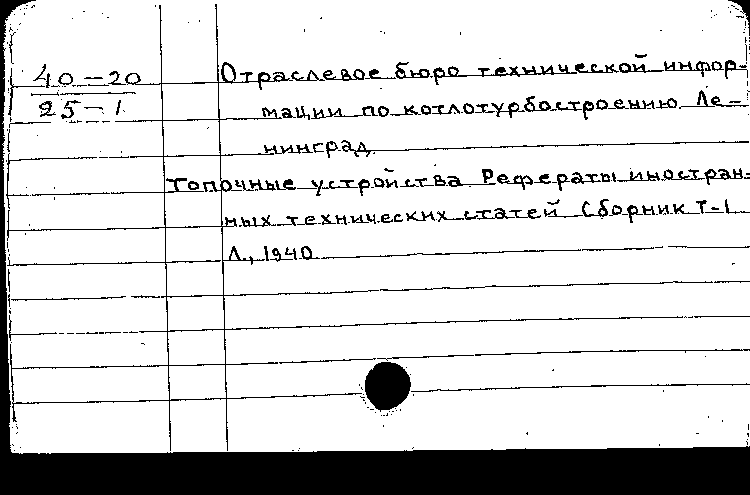 40-20
25-1
Отраслевое бюро технической инфор-
мации по котлотурбостроению Ле-
нинград
Топочные устройства Рефераты иностран-
ных технических статей Сборник Т-1
Л., 1940